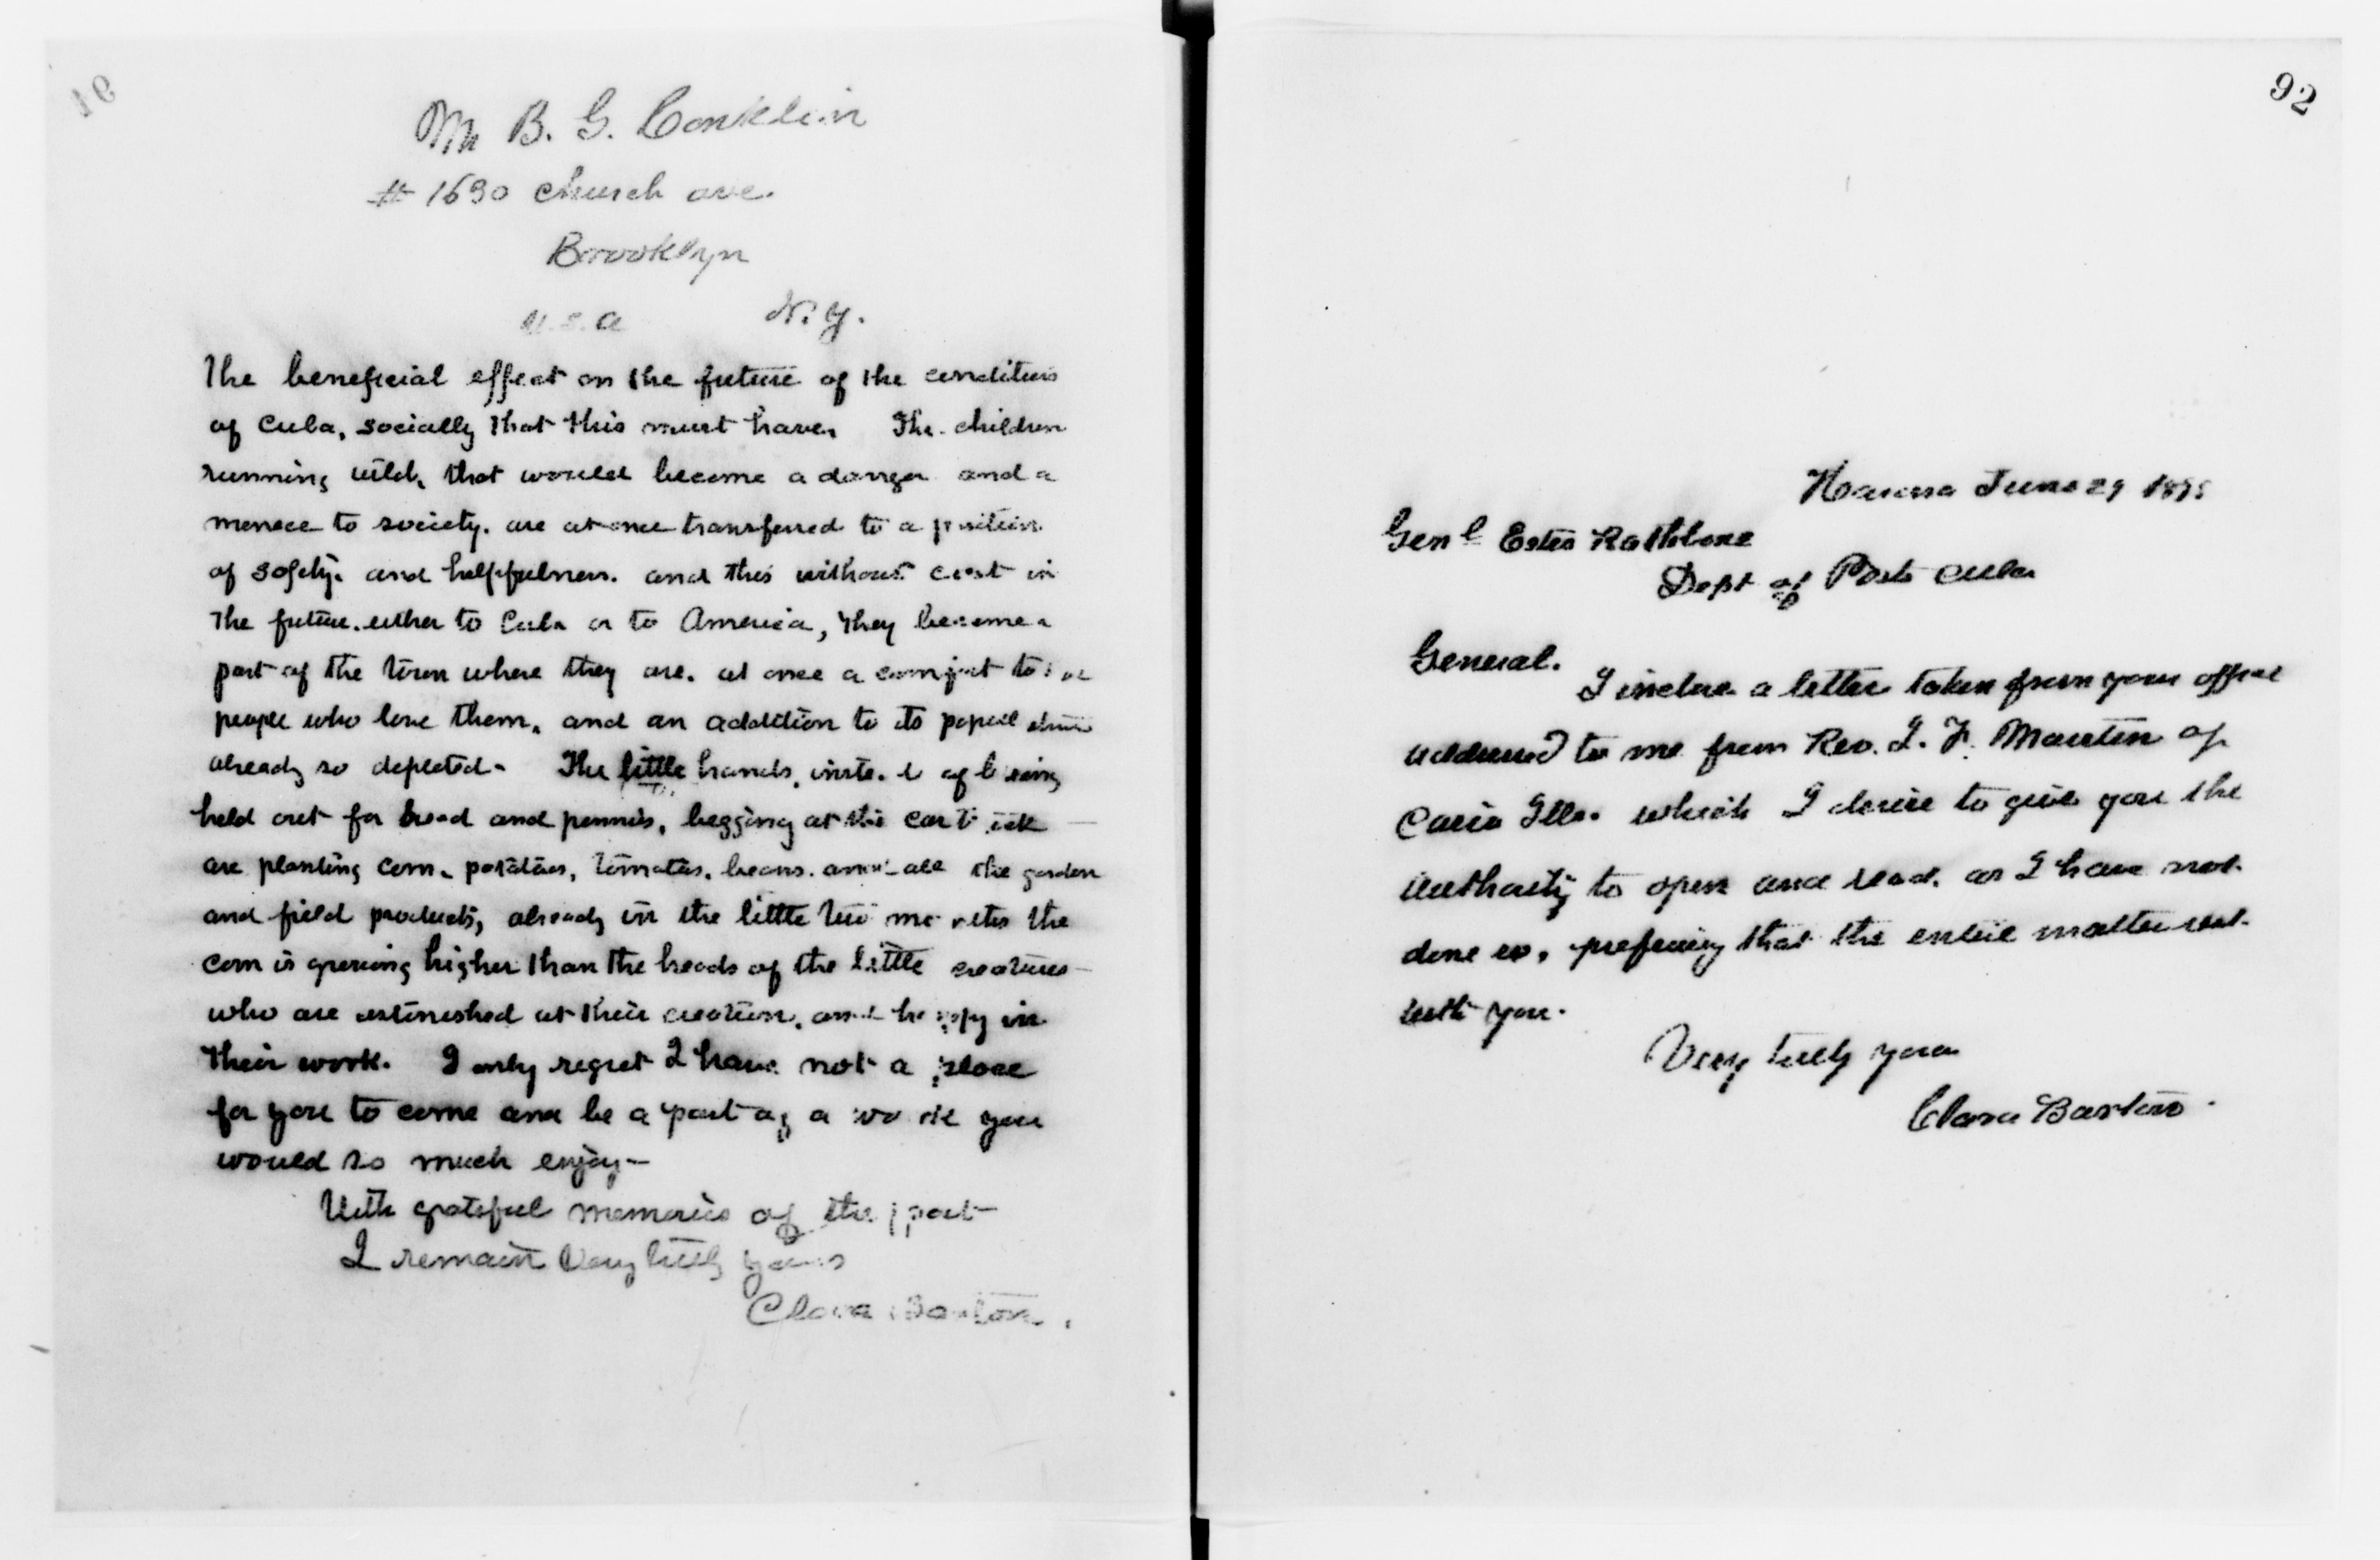 91
Mr B. G. Conklin
# 1630 Church ave.
Brooklyn
U.S.A N.Y.
The beneficial effect on the future of the conditions
of Cuba, socially that this must have. The children
running wild, that would become a danger and a
menace to society. are at once transferred to a position
of safety. and helpfulness. and this without cost in
the future. either to Cuba or to America, they become a
part of the town where they are. at once a comfort to
people who love them, and an addition to its population
already so depleted. The little hands, instead of being
held out for bread and pennies, begging at the car
are planting corn, potatoes, tomatoes, beans. and all the garden
and field products, already in the little two months the
corn is growing higher than the heads of the little creatures
who are astonished at their creation, and happy in
their work. I only regret I have not a place
for you to come and be a part of a work you
would so much enjoy—
With grateful memories of the past
I remain Very truly yours
Clara Barton.
92
Havana June 29 1899
Genl Estes Rathbone
Dept of Posts Cuba
General.
I inclose a letter taken from your office
addressed to me from Rev. J. F. Martin of
Cairo Ills. which I desire to give you the
authority to open and read. as I have not
done so, preferring that the entire matter rest
with you.
Very truly yours
Clara Barton.